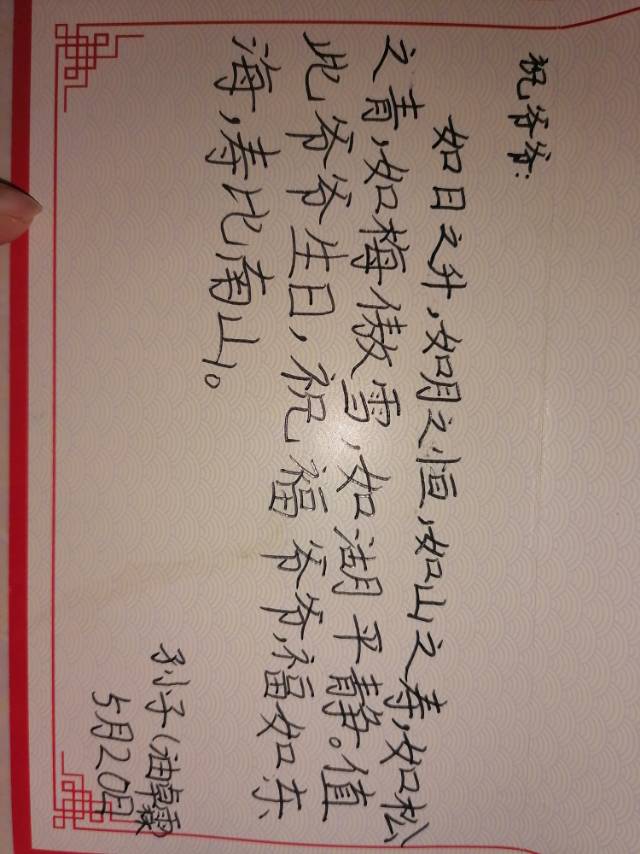 祝爷爷:
如日之升,如月之恒,如山之寿,如松
之青,如梅傲雪,如湖平静。值
此爷爷生日,祝福爷爷,福如东
海,寿比南山。
孙子(油卓霖)
5月20日